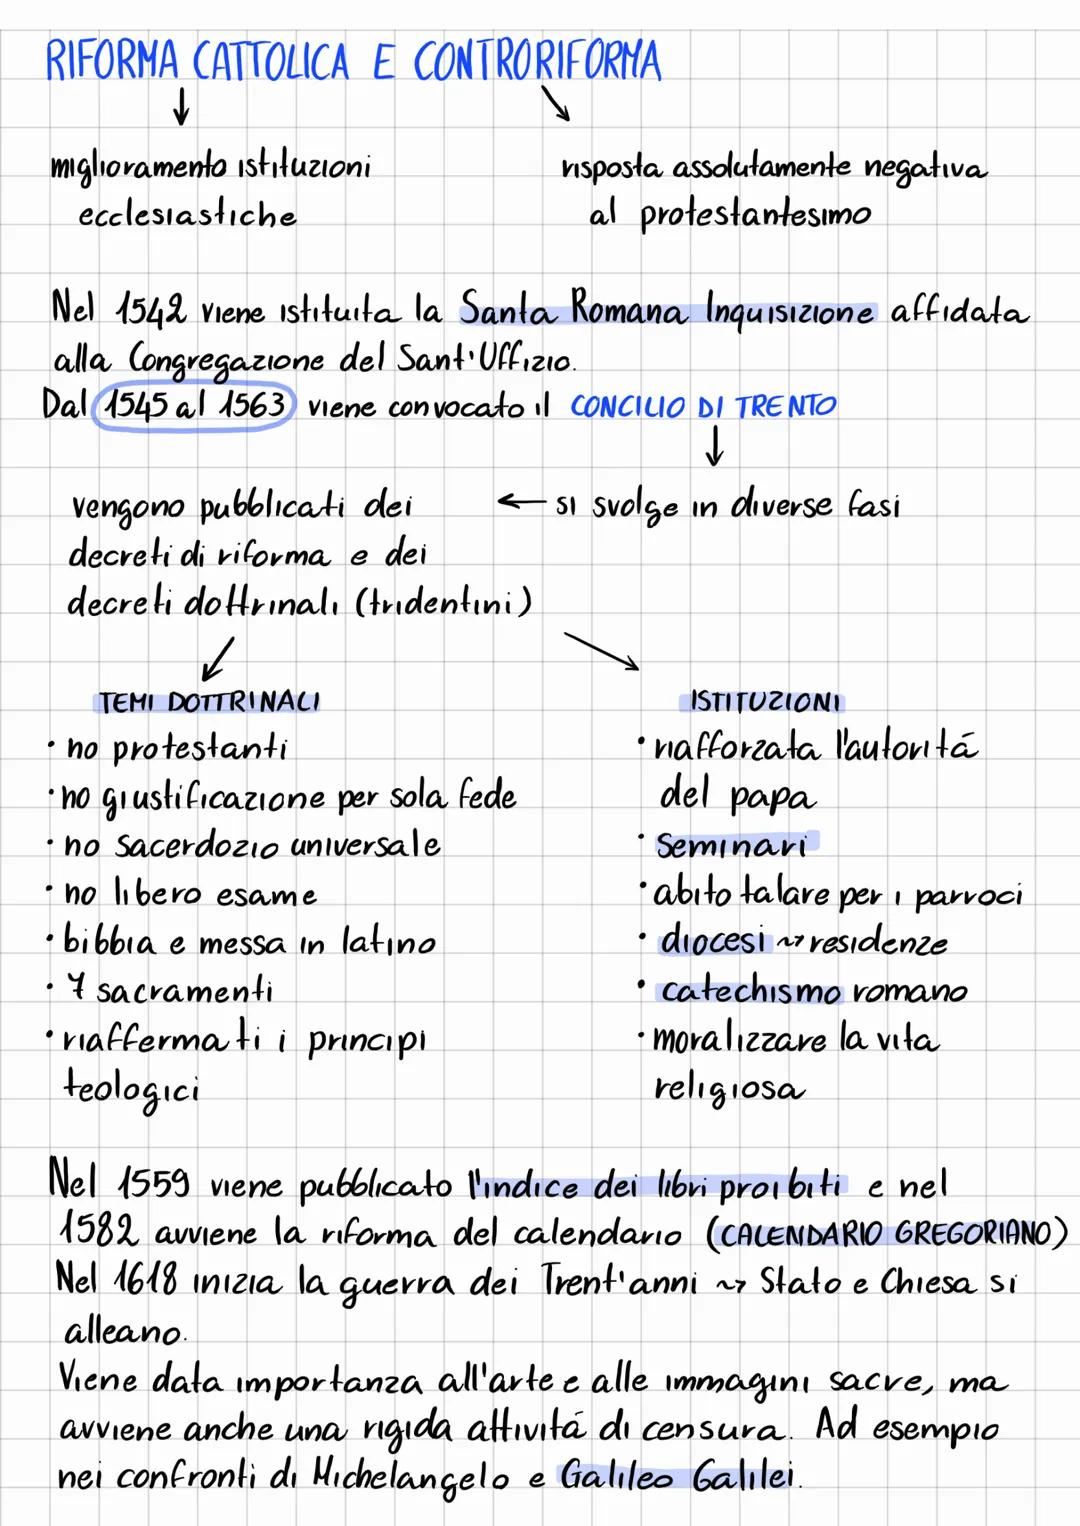 RIFORMA CATTOLICA E CONTRORIFORMA
↓ ↘
miglioramento istituzioni
ecclesiastiche
risposta assolutamente negativa
al protestantesimo
Nel 1542 viene istituita la Santa Romana Inquisizione affidata
alla Congregazione del Sant'Uffizio.
Dal 1545 al 1563 viene convocato il CONCILIO DI TRENTO
↓
← si svolge in diverse fasi
vengono pubblicati dei
decreti di riforma e dei
decreti dottrinali (tridentini)
↙ ↘
TEMI DOTTRINALI
• no protestanti
• no giustificazione per sola fede
• no sacerdozio universale
• no libero esame
• bibbia e messa in latino
• 7 sacramenti
• riaffermati i principi
teologici
ISTITUZIONI
• riafforzata l'autoritá
del papa
• Seminari
• abito talare per i parroci
• diocesi ~> residenze
• catechismo romano
• moralizzare la vita
religiosa
Nel 1559 viene pubblicato l'indice dei libri proibiti e nel
1582 avviene la riforma del calendario (CALENDARIO GREGORIANO)
Nel 1618 inizia la guerra dei Trent'anni ~> Stato e Chiesa si
alleano.
Viene data importanza all'arte e alle immagini sacre, ma
avviene anche una rigida attivitá di censura. Ad esempio
nei confronti di Michelangelo e Galileo Galilei.